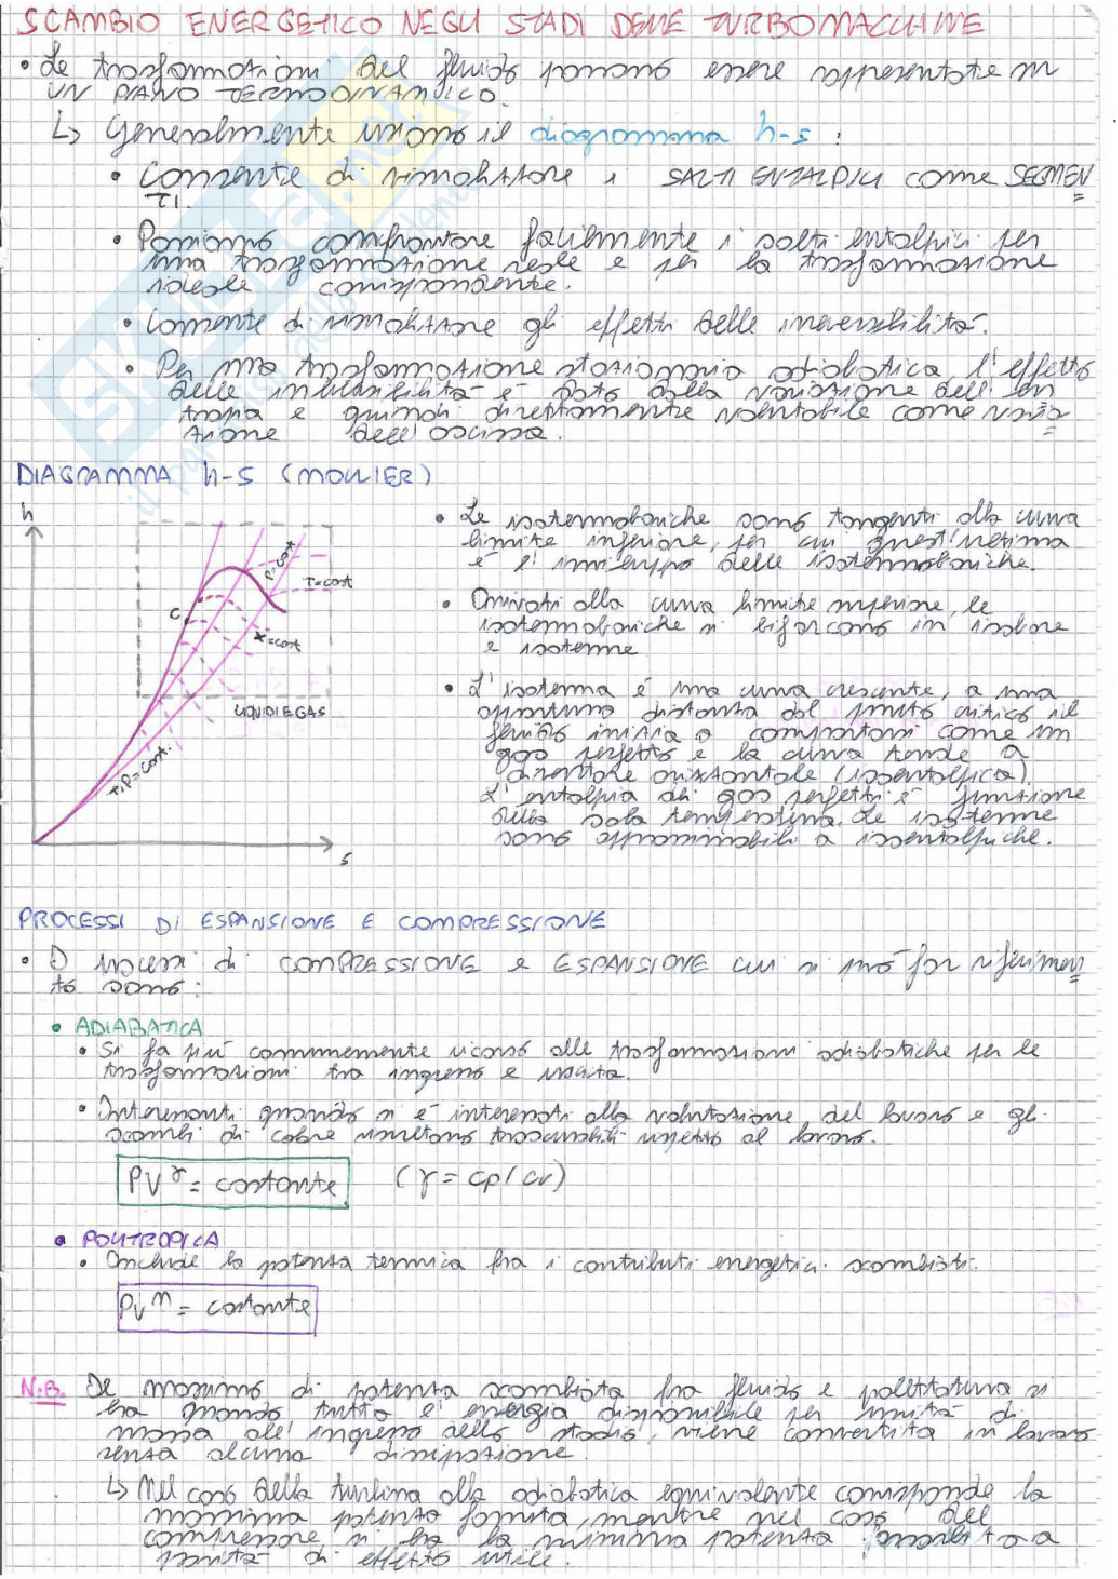 SCAMBIO ENERGETICO NEGLI STADI DELLE TURBOMACCHINE
• Le trasformazioni del fluido possono essere rappresentate in
UN PIANO TERMODINAMICO.
↳ Generalmente usiamo il diagramma h-s :
• Consente di visualizzare i SALTI ENTALPICI come SEGMEN
TI.
• Possiamo confrontare facilmente i salti entalpici per
una trasformazione reale e per la trasformazione
ideale corrispondente.
• Consente di visualizzare gli effetti delle irreversibilità.
• Per una trasformazione stazionaria adiabatica, l'effetto
delle irreversibilità è dato dalla variazione dell'en
tropia e quindi direttamente valutabile come varia
zione dell'ascissa.
DIAGRAMMA h-s (MOLLIER)
h
P=cost
T=cost
C
x=cost
LIQUIDI E GAS
T,P=cost.
s
• Le isotermobariche sono tangenti alla curva
limite inferiore, per cui quest'ultima
è l'inviluppo delle isotermobariche.
• Arrivati alla curva limite superiore, le
isotermobariche si biforcano in isobare
e isoterme
• L'isoterma è una curva crescente, a una
opportuna distanza dal punto critico il
fluido inizia a comportarsi come un
gas perfetto e la curva tende a
diventare orizzontale (isoentalpica).
L'entalpia di gas perfetti è funzione
della sola temperatura. Le isoterme
sono approssimabili a isoentalpiche.
PROCESSI DI ESPANSIONE E COMPRESSIONE
• I processi di COMPRESSIONE e ESPANSIONE cui si può far riferimen
to sono:
• ADIABATICA
• Si fa più comunemente ricorso alle trasformazioni adiabatiche per le
trasformazioni tra ingresso e uscita.
• Interessanti quando si è interessati alla valutazione del lavoro e gli
scambi di calore risultano trascurabili rispetto al lavoro.
PV^γ = costante (γ = cp/cv)
• POLITROPICA
• Include la potenza termica fra i contributi energetici scambiati.
PV^n = costante
N.B. Il massimo di potenza scambiata fra fluido e palettatura si
ha quando tutta l'energia disponibile per unità di
massa all'ingresso dello stadio, viene convertita in lavoro
senza alcuna dissipazione.
↳ Nel caso della turbina alla adiabatica equivalente corrisponde la
massima potenza fornita, mentre nel caso del
compressore si ha la minima potenza assorbita a
parità di effetto utile.